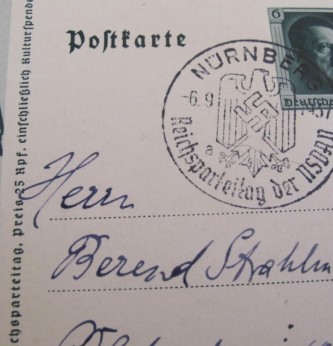 Postkarte
6
Deutsches
NÜRNBERG
-6.9
37
a
Reichsparteitag der NSDAP
einschließlich Kulturspende
chsparteitag. Preis 25 Rpf.
Herrn
Berend Strahlm